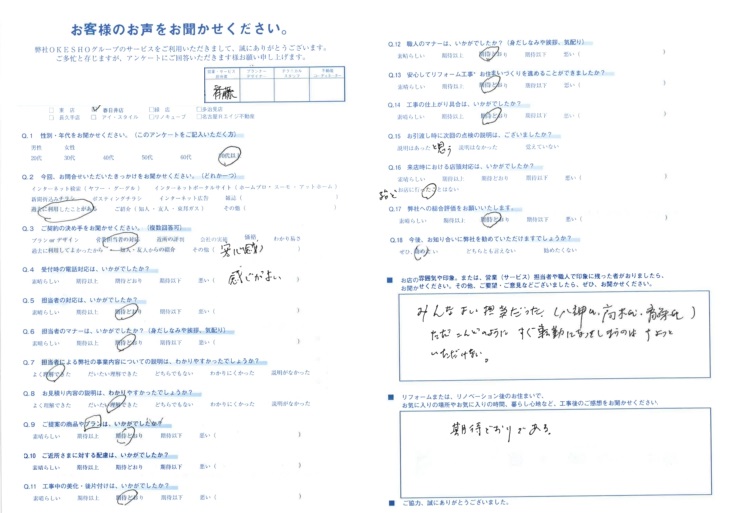 お客様のお声をお聞かせください。
弊社OKESHOグループのサービスをご利用いただきまして、誠にありがとうございます。
ご多忙と存じますが、アンケートにご回答いただきます様お願い申し上げます。
斉藤
Q.1 性別・年代をお聞かせください。（このアンケートをご記入いただく方）
男性 女性
20代 30代 40代 50代 60代 70代以上
Q.2 今回、お問合せいただいたきっかけをお聞かせください。（どれか一つ）
インターネット検索（ヤフー・グーグル） インターネットポータルサイト（ホームプロ・スーモ・アットホーム）
新聞折込みチラシ ポスティングチラシ インターネット広告 雑誌（ ）
過去に利用したことがある ご紹介（知人・友人・東邦ガス） その他（ ）
Q.3 ご契約の決め手をお聞かせください。（複数回答可）
プラン or デザイン 営業担当者の対応 技術の評判 会社の実績 価格 わかり易さ
過去に利用してよかったから 知人・友人からの紹介 その他（
感じがよい
Q.4 受付時の電話対応は、いかがでしたか？
素晴らしい 期待以上 期待どおり 期待以下 悪い（
Q.5 担当者の対応は、いかがでしたか？
素晴らしい 期待以上 期待どおり 期待以下 悪い（ ）
Q.6 担当者のマナーは、いかがでしたか？（身だしなみや挨拶、気配り）
素晴らしい 期待以上 期待どおり 期待以下 悪い（ ）
Q.7 担当者による弊社の事業内容についての説明は、わかりやすかったでしょうか？
よく理解できた だいたい理解できた どちらでもない わかりにくかった 説明がなかった
Q.8 お見積り内容の説明は、わかりやすかったでしょうか？
よく理解できた だいたい理解できた どちらでもない わかりにくかった 説明がなかった
Q.9 ご提案の商品やプランは、いかがでしたか？
素晴らしい 期待以上 期待どおり 期待以下 悪い（ ）
Q.10 ご近所さまに対する配慮は、いかがでしたか？
素晴らしい 期待以上 期待どおり 期待以下 悪い（ ）
Q.11 工事中の美化・後片付けは、いかがでしたか？
素晴らしい 期待以上 期待どおり 期待以下 悪い（ ）
Q.12 職人のマナーは、いかがでしたか？（身だしなみや挨拶、気配り）
素晴らしい 期待以上 期待どおり 期待以下 悪い（ ）
Q.13 安心してリフォーム工事・お住まいづくりを進めることができましたか？
素晴らしい 期待以上 期待どおり 期待以下 悪い（ ）
Q.14 工事の仕上がり具合は、いかがでしたか？
素晴らしい 期待以上 期待どおり 期待以下 悪い（ ）
Q.15 お引渡し時に次回の点検の説明は、ございましたか？
説明はあった と思う 説明はなかった 覚えていない
Q.16 来店時における店頭対応は、いかがでしたか？
素晴らしい 期待以上 期待どおり 期待以下 悪い（ ）
お店に行ったことはない
Q.17 弊社への総合評価をお願いいたします。
素晴らしい 期待以上 期待どおり 期待以下 悪い（ ）
Q.18 今後、お知り合いに弊社を勧めていただけますでしょうか？
ぜひ、勧めたい 勧めたい どちらとも言えない 勧めたくない
■ お店の雰囲気や印象。または、営業（サービス）担当者や職人で印象に残った者がおりましたら、
お聞かせください。その他、ご要望・ご意見などございましたら、ぜひ、お聞かせください。
みんなよい担当だった
すぐ転勤になってしまうのはちょっと
いただけない。
■ リフォームまたは、リノベーション後のお住まいで、
お気に入りの場所やお気に入りの時間、暮らし心地など、工事後のご感想をお聞かせください。
期待どおりである。
■ ご協力、誠にありがとうございました。